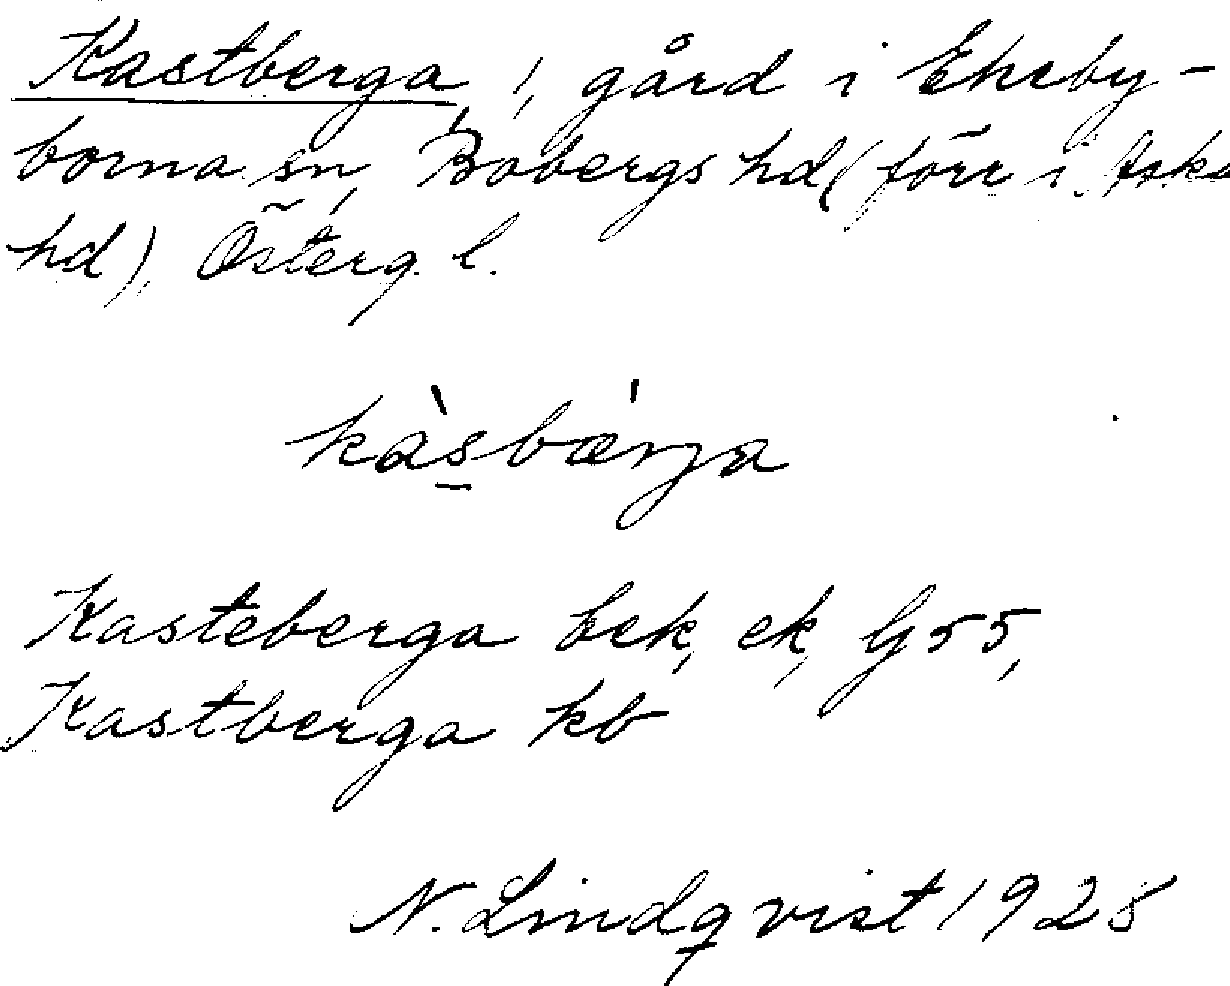 Kastberga, 1, gård i Ekeby-
borna sn, Bobergs hd (förr i Aska
hd), Österg. l.
kàsbær̀ja
Kasteberga bek, ek, G 55,
Kastberga kb
N. Lindqvist 1928